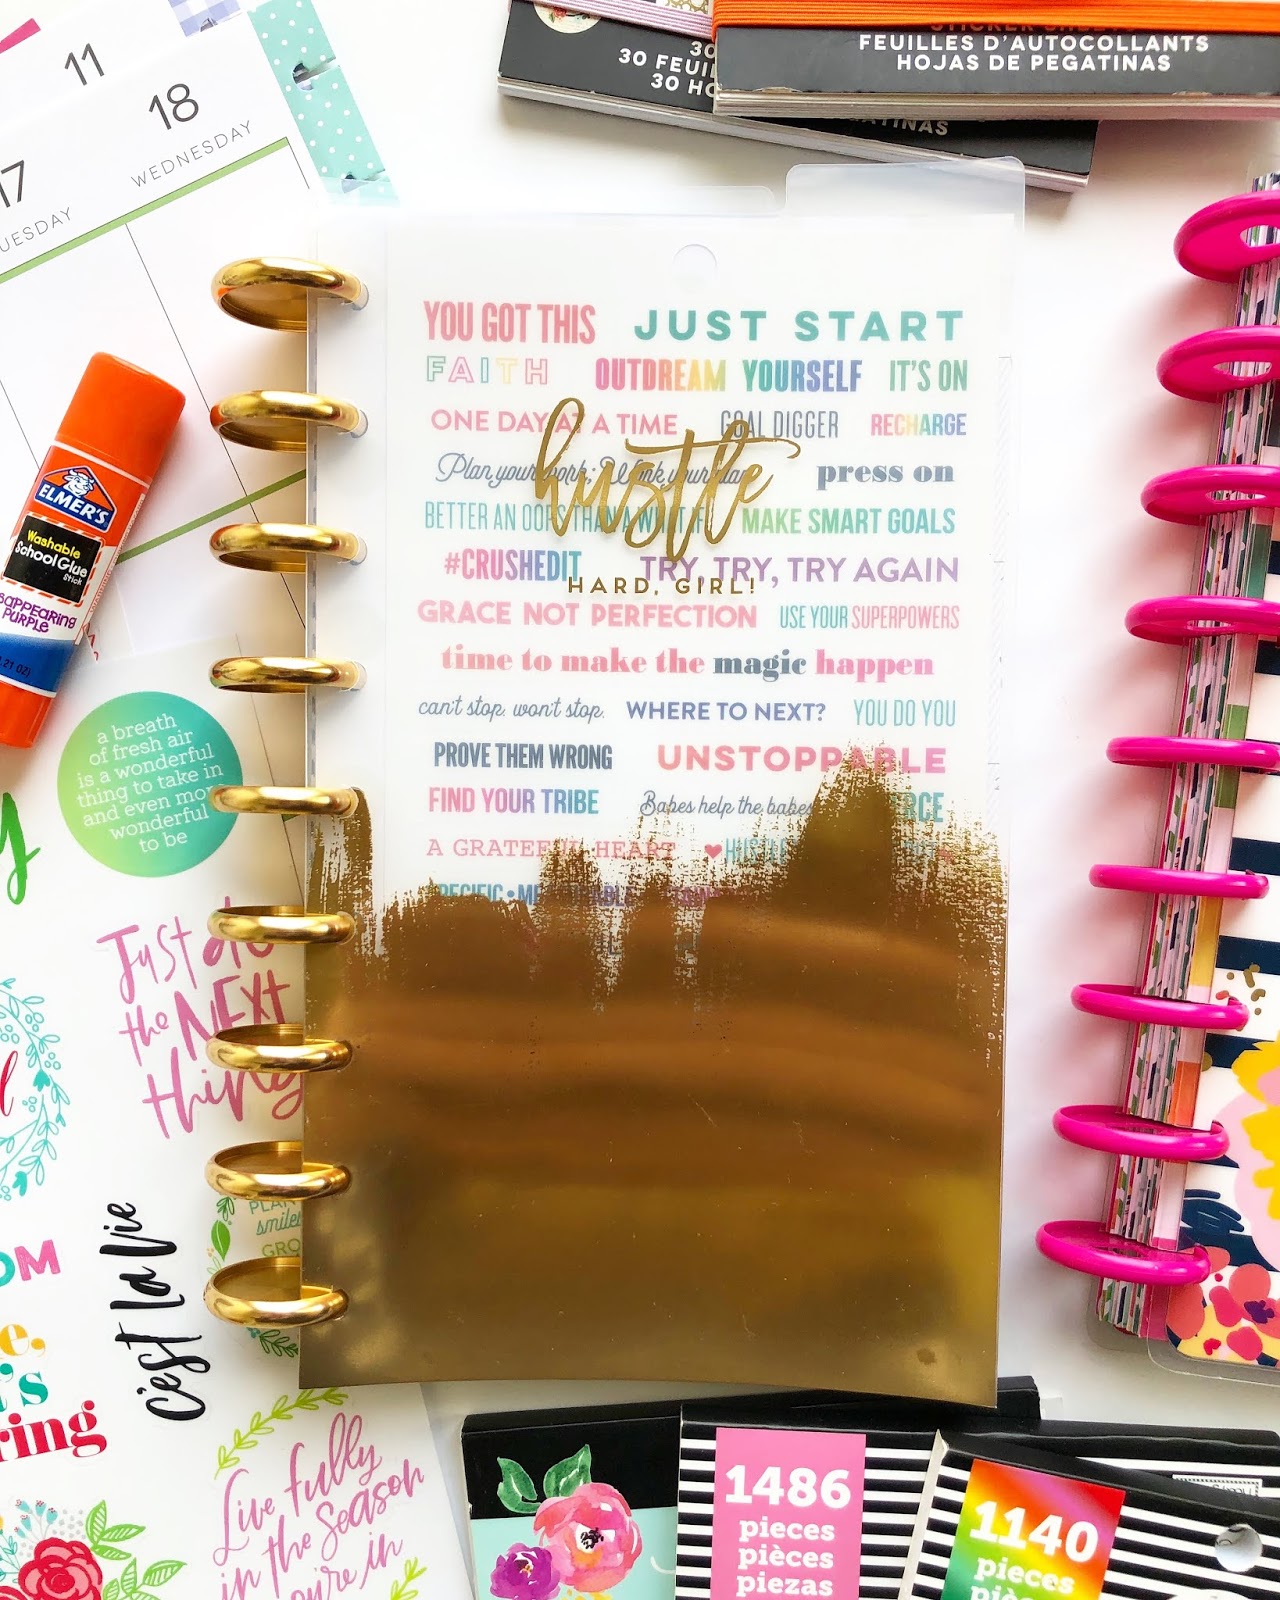 11
18
17
WEDNESDAY
UESDAY
30
30 FEUIL
30 HO
FEUILLES D'AUTOCOLLANTS
HOJAS DE PEGATINAS
GATINAS
YOU GOT THIS JUST START
FAITH OUTDREAM YOURSELF IT'S ON
ONE DAY AT A TIME GOAL DIGGER RECHARGE
hustle
Plan your work; Work your plan press on
BETTER AN OOPS THAN A WHAT IF MAKE SMART GOALS
#CRUSHEDIT TRY, TRY, TRY AGAIN
HARD, GIRL!
GRACE NOT PERFECTION USE YOUR SUPERPOWERS
time to make the magic happen
can't stop. won't stop. WHERE TO NEXT? YOU DO YOU
PROVE THEM WRONG UNSTOPPABLE
FIND YOUR TRIBE Babes help the babes RCE
A GRATEFUL HEART ♥HUSTLE
ELMER'S
Washable
School Glue
Stick
SAPPEARING
PURPLE
.21 OZ)
a breath
of fresh air
is a wonderful
thing to take in
and even more
wonderful
to be
y
Just do
the NEXT
thing
PLAN
smiles
GRO
C'est La Vie
OM
e,
's
ring
Live fully
in the season
you're in
1486
pieces
pièces
piezas
1140
pieces